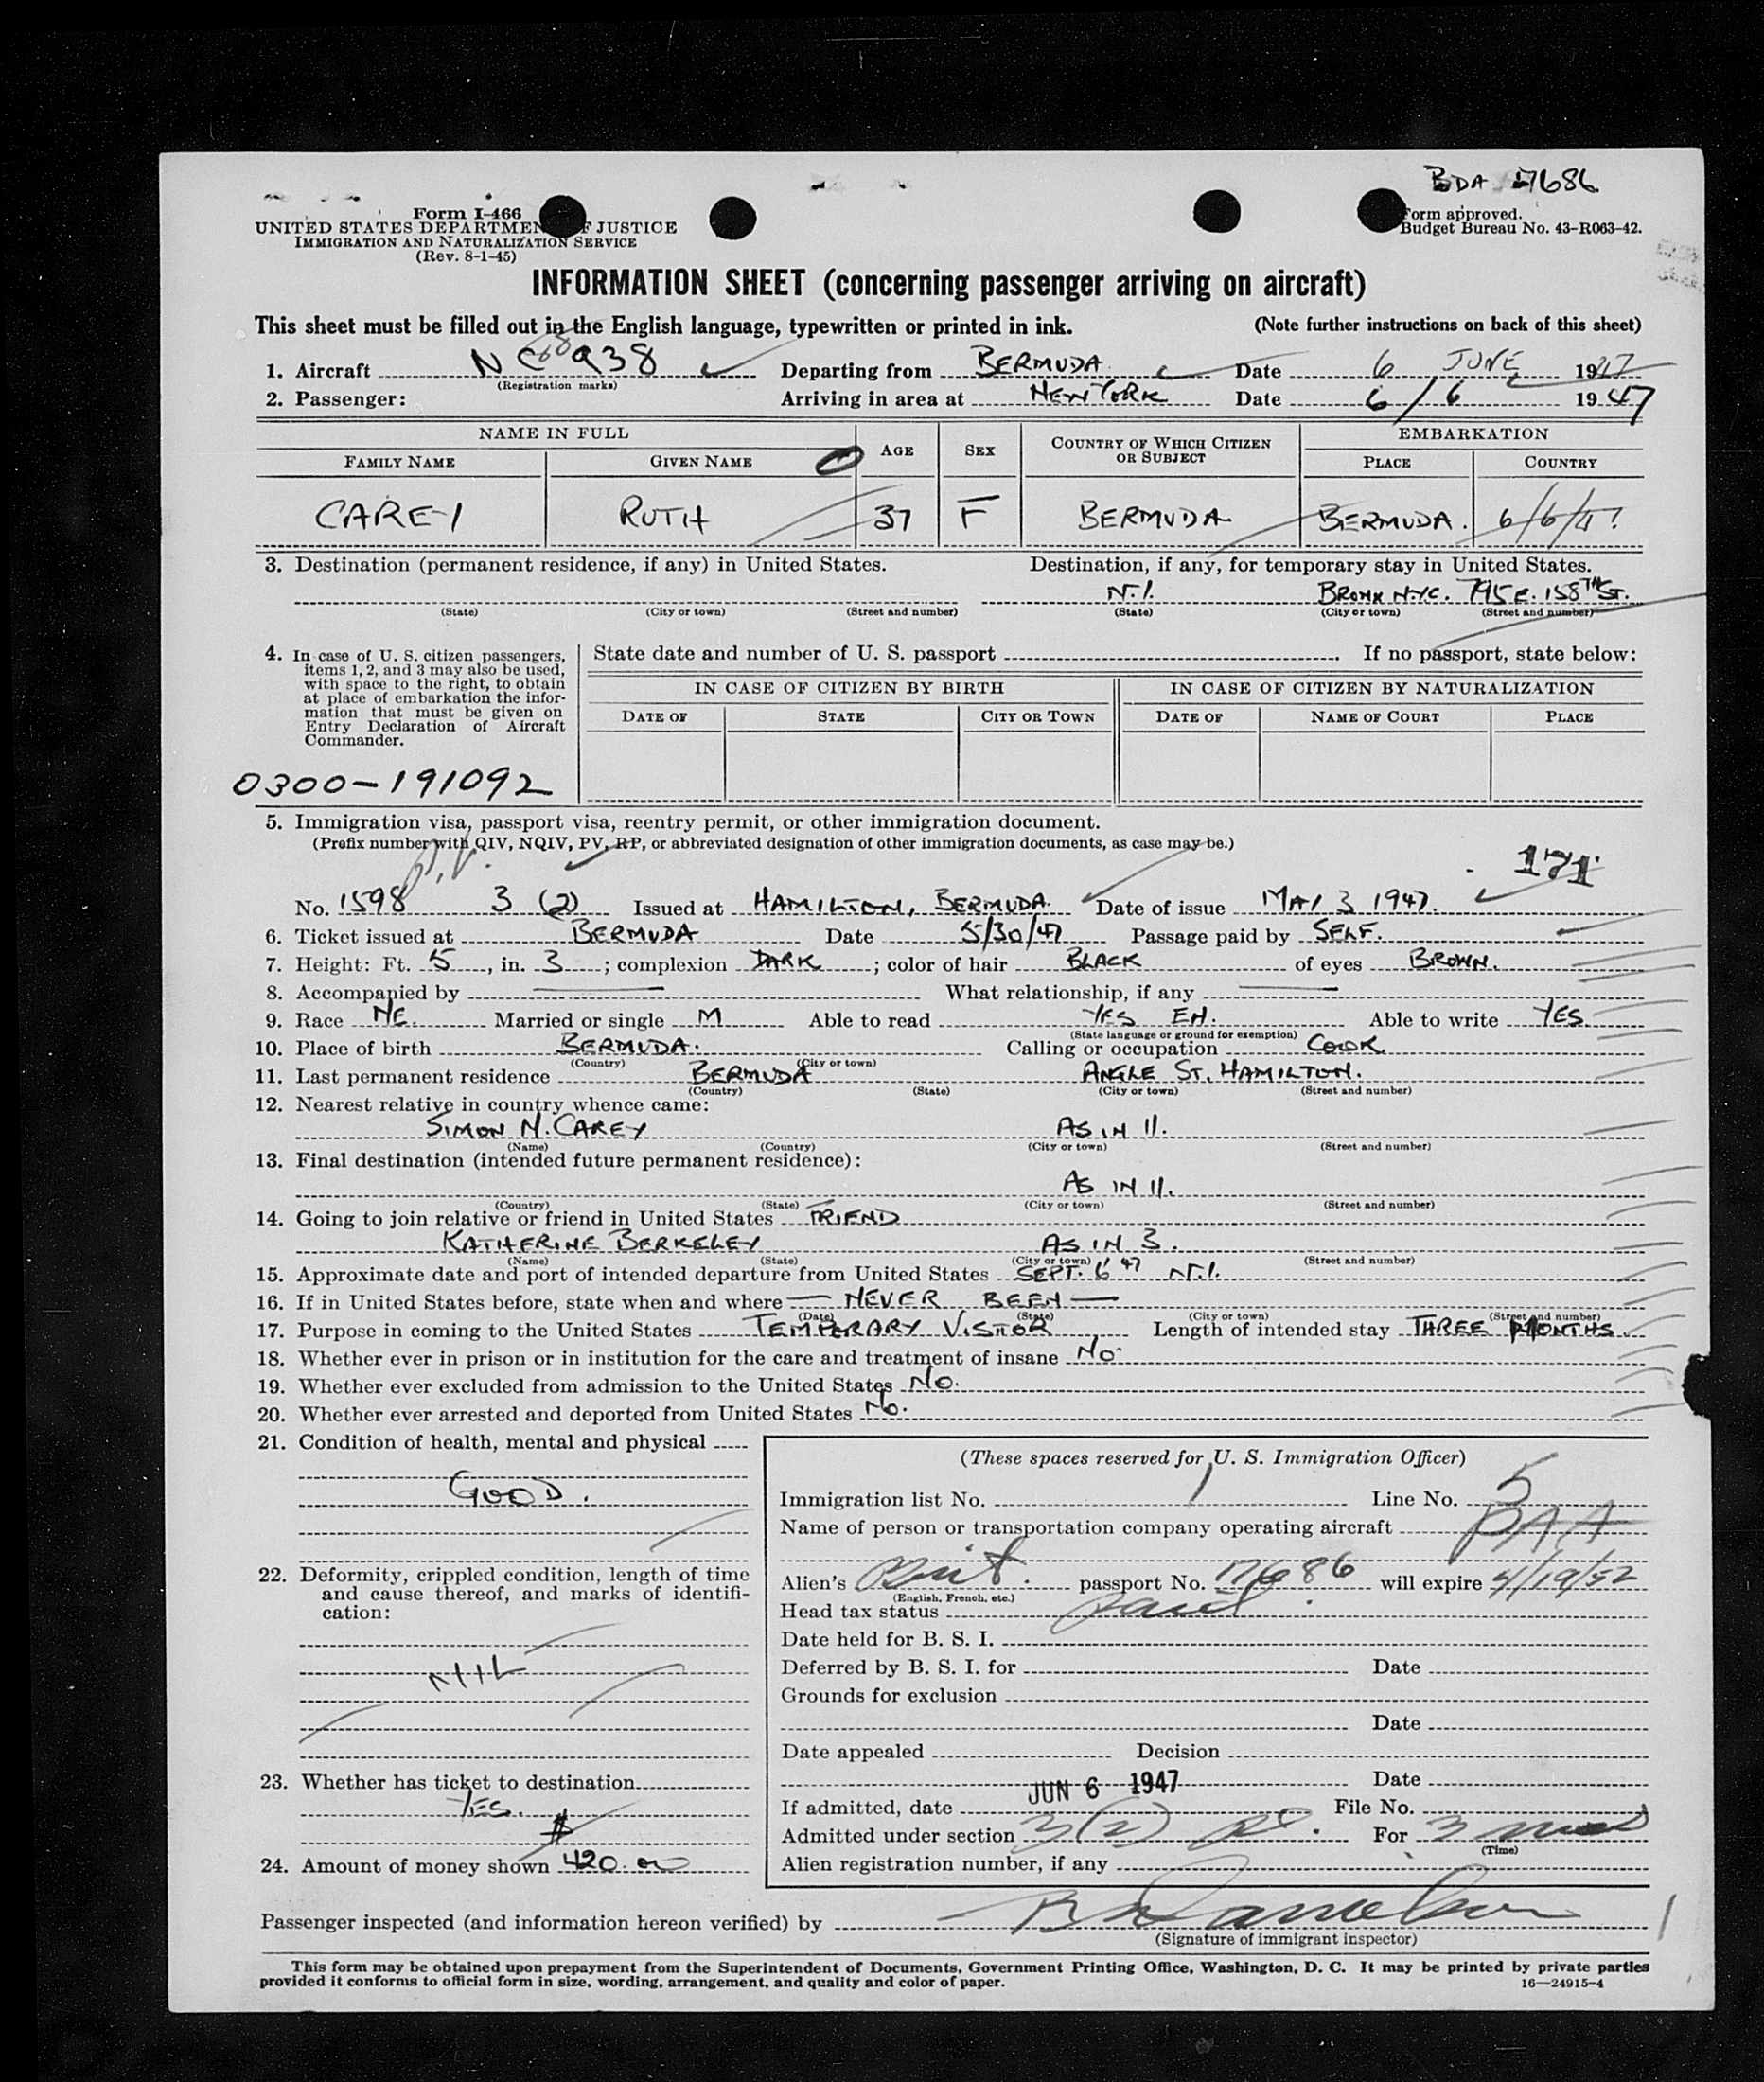 BDA 17686
Form I-466
UNITED STATES DEPARTMENT OF JUSTICE
IMMIGRATION AND NATURALIZATION SERVICE
(Rev. 8-1-45)
Form approved.
Budget Bureau No. 43-R063-42.
INFORMATION SHEET (concerning passenger arriving on aircraft)
This sheet must be filled out in the English language, typewritten or printed in ink. (Note further instructions on back of this sheet)
1. Aircraft NC 938 Departing from BERMUDA Date 6 JUNE 1947
(Registration marks)
2. Passenger: Arriving in area at NEW YORK Date 6/6 1947
NAME IN FULL AGE SEX COUNTRY OF WHICH CITIZEN OR SUBJECT EMBARKATION
FAMILY NAME GIVEN NAME PLACE COUNTRY
CAREY RUTH 37 F BERMUDA BERMUDA. 6/6/47
3. Destination (permanent residence, if any) in United States. Destination, if any, for temporary stay in United States.
N.Y. BRONX NYC. 795 E. 158TH ST.
(State) (City or town) (Street and number) (State) (City or town) (Street and number)
4. In case of U. S. citizen passengers, items 1, 2, and 3 may also be used, with space to the right, to obtain at place of embarkation the information that must be given on Entry Declaration of Aircraft Commander.
State date and number of U. S. passport If no passport, state below:
IN CASE OF CITIZEN BY BIRTH IN CASE OF CITIZEN BY NATURALIZATION
DATE OF STATE CITY OR TOWN DATE OF NAME OF COURT PLACE
0300-191092
5. Immigration visa, passport visa, reentry permit, or other immigration document.
(Prefix number with QIV, NQIV, PV, RP, or abbreviated designation of other immigration documents, as case may be.)
P.V.
171
No. 1598 3 (2) Issued at HAMILTON, BERMUDA. Date of issue MAY 3 1947.
6. Ticket issued at BERMUDA Date 5/30/47 Passage paid by SELF.
7. Height: Ft. 5, in. 3; complexion DARK; color of hair BLACK of eyes BROWN.
8. Accompanied by What relationship, if any
9. Race NE. Married or single M Able to read YES EN. Able to write YES.
(State language or ground for exemption)
10. Place of birth BERMUDA. Calling or occupation COOK
(Country) (City or town)
11. Last permanent residence BERMUDA ANGLE ST. HAMILTON.
(Country) (State) (City or town) (Street and number)
12. Nearest relative in country whence came:
SIMON N. CAREY AS IN 11.
(Name) (Country) (City or town) (Street and number)
13. Final destination (intended future permanent residence):
AS IN 11.
(Country) (State) (City or town) (Street and number)
14. Going to join relative or friend in United States FRIEND
KATHERINE BERKELEY AS IN 3.
(Name) (State) (City or town) (Street and number)
15. Approximate date and port of intended departure from United States SEPT. 6 '47 N.Y.
16. If in United States before, state when and where — NEVER BEEN —
(Date) (State) (City or town) (Street and number)
17. Purpose in coming to the United States TEMPORARY VISITOR Length of intended stay THREE MONTHS
18. Whether ever in prison or in institution for the care and treatment of insane NO
19. Whether ever excluded from admission to the United States NO.
20. Whether ever arrested and deported from United States NO.
21. Condition of health, mental and physical
GOOD.
22. Deformity, crippled condition, length of time and cause thereof, and marks of identification:
NIL
23. Whether has ticket to destination
YES.
$
24. Amount of money shown 420.00
(These spaces reserved for U. S. Immigration Officer)
Immigration list No. 1 Line No. 5
Name of person or transportation company operating aircraft PAA
Alien's Brit. passport No. 17686 will expire 4/19/52
(English, French, etc.)
Head tax status paid
Date held for B. S. I.
Deferred by B. S. I. for Date
Grounds for exclusion
Date
Date appealed Decision
Date
If admitted, date JUN 6 1947 File No.
Admitted under section 3(2) For 3 mos
(Time)
Alien registration number, if any
Passenger inspected (and information hereon verified) by
(Signature of immigrant inspector)
This form may be obtained upon prepayment from the Superintendent of Documents, Government Printing Office, Washington, D. C. It may be printed by private parties
provided it conforms to official form in size, wording, arrangement, and quality and color of paper. 16—24915-4